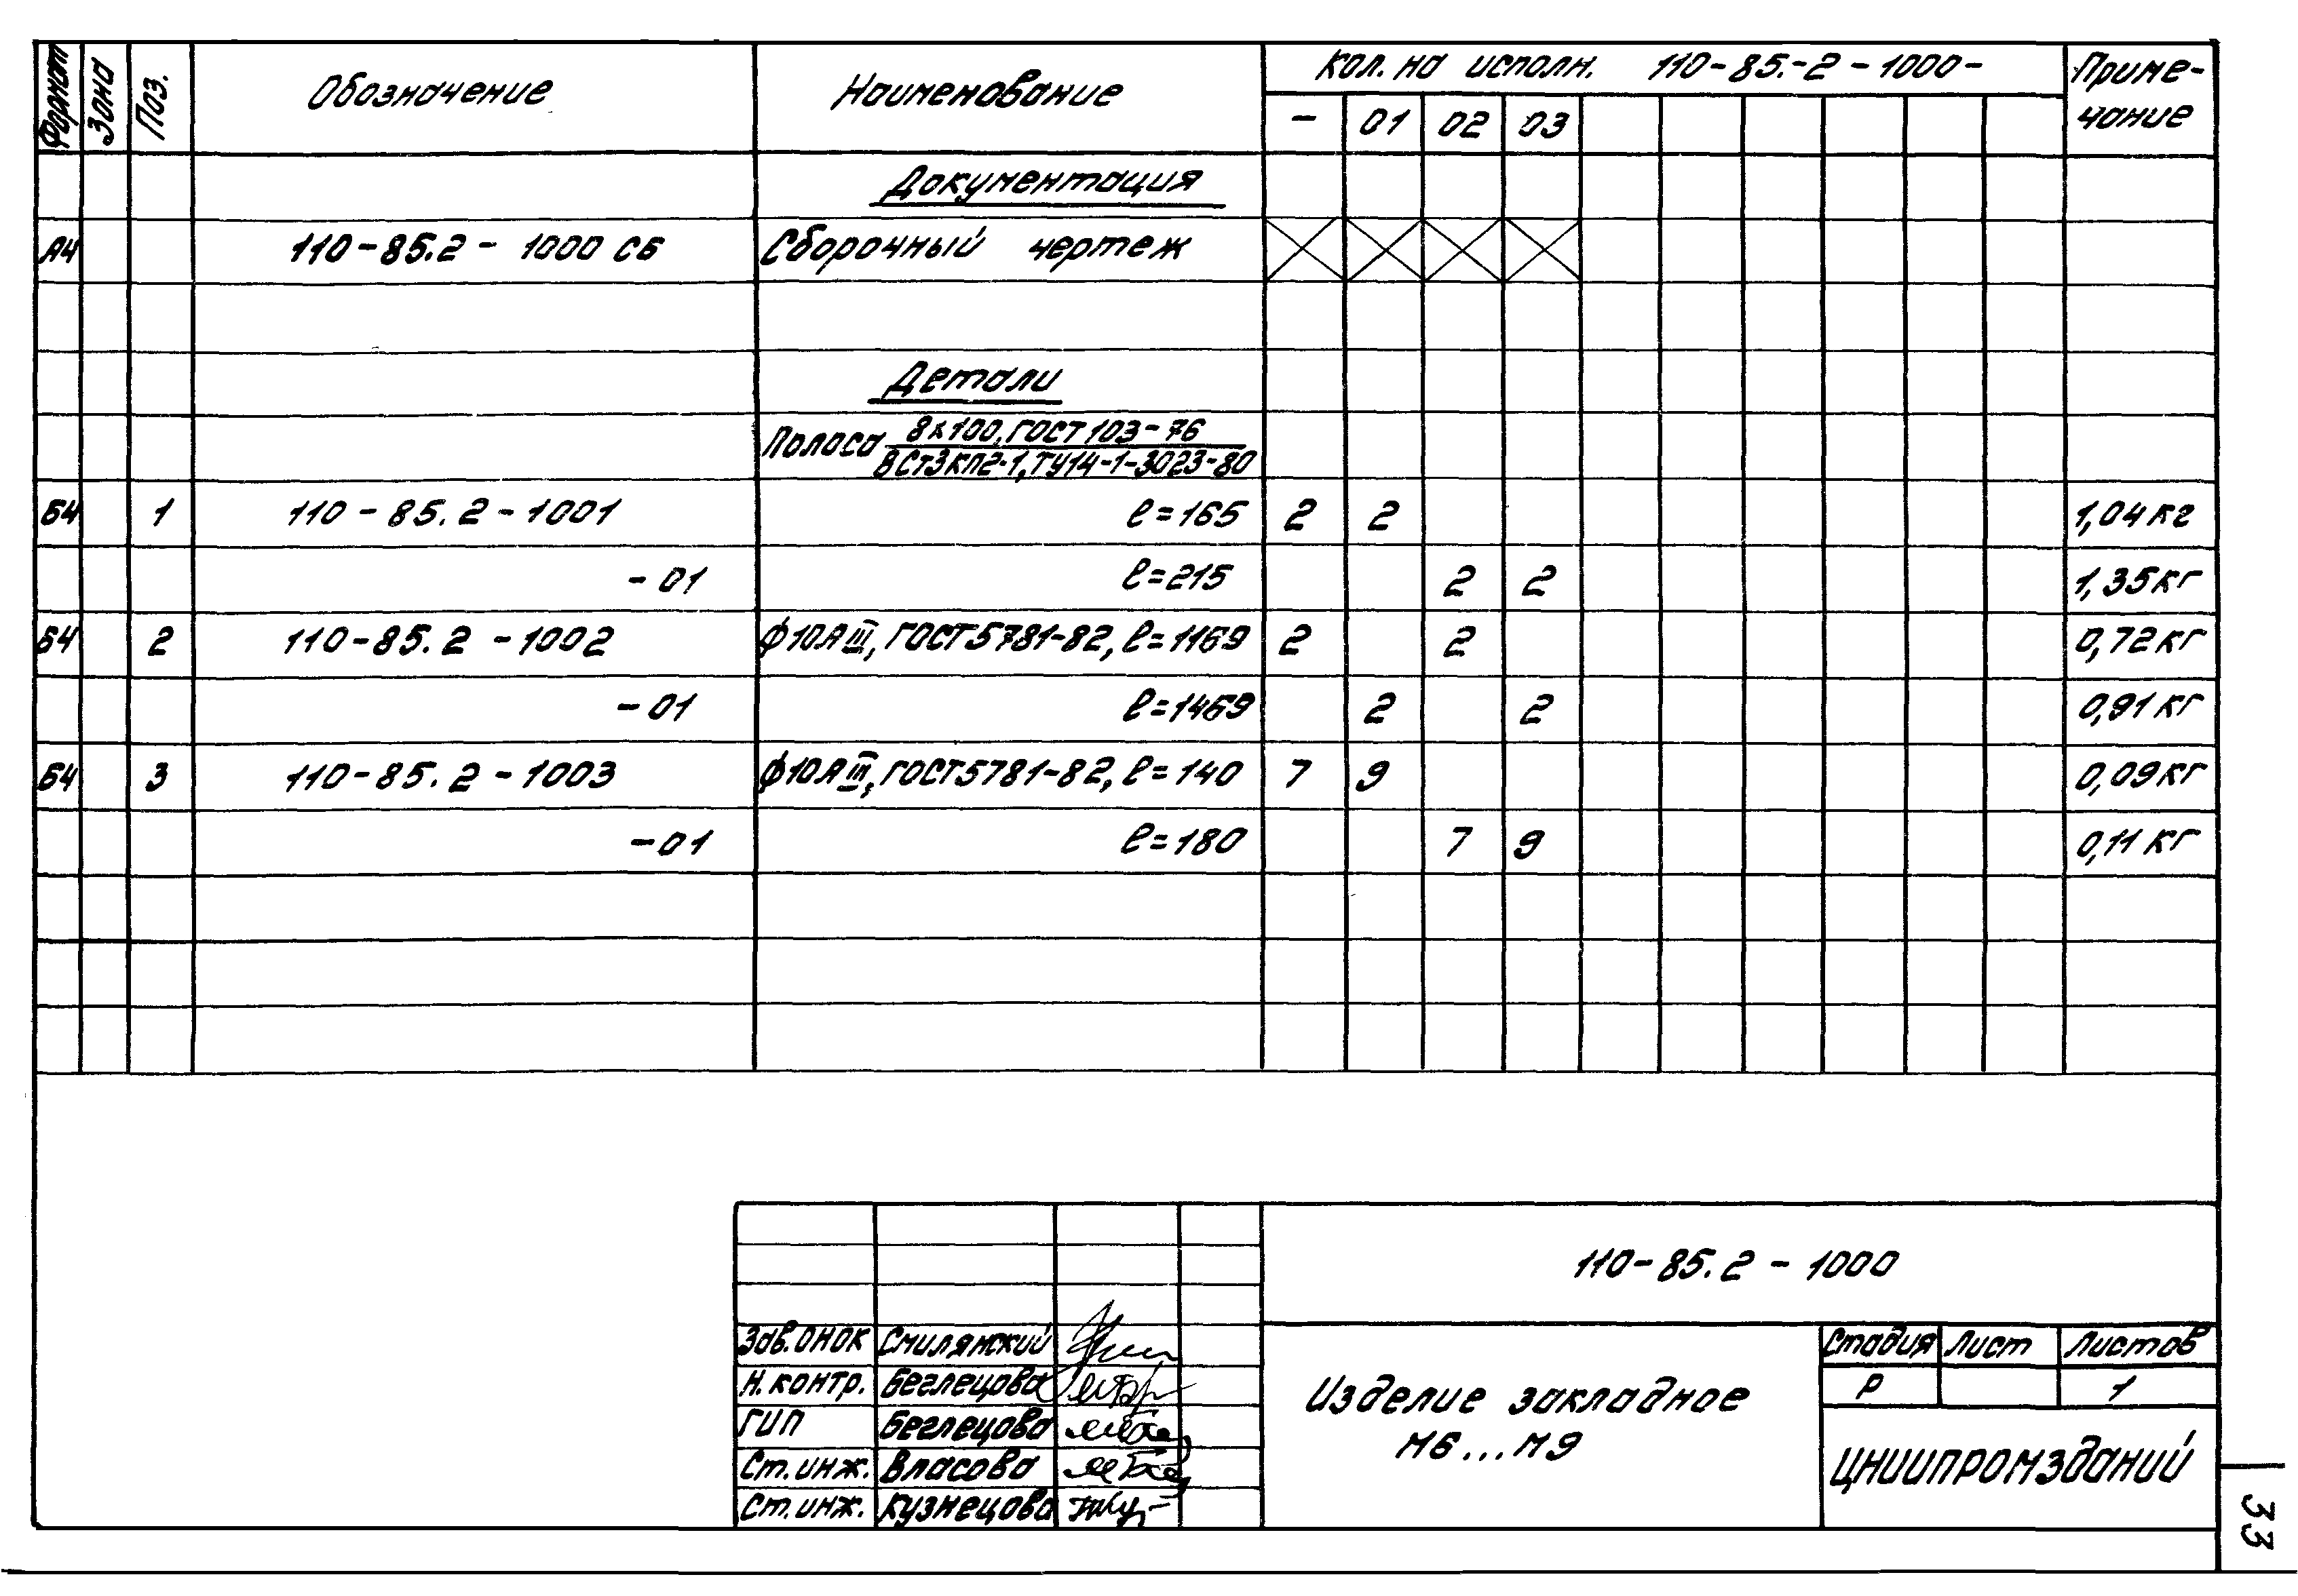 Формат Зона Поз. Обозначение Наименование Кол. на исполн. 110-85.-2-1000- Приме-
чание
- 01 02 03
Документация
А4 110-85.2-1000 СБ Сборочный чертеж
Детали
Полоса 8х100, ГОСТ 103-76
ВСт3кп2-1, ТУ14-1-3023-80
Б4 1 110-85.2-1001 ℓ=165 2 2 1,04кг
-01 ℓ=215 2 2 1,35кг
Б4 2 110-85.2-1002 ф10АIII, ГОСТ5781-82, ℓ=1169 2 2 0,72кг
-01 ℓ=1469 2 2 0,91кг
Б4 3 110-85.2-1003 ф10АIII, ГОСТ5781-82, ℓ=140 7 9 0,09кг
-01 ℓ=180 7 9 0,11кг
110-85.2-1000
Зав.ОНОК Смилянский
Н.контр. Беглецова
ГИП Беглецова
Ст.инж. Власова
Ст.инж. Кузнецова
Изделие закладное
М6...М9
Стадия Лист Листов
Р 1
ЦНИИПРОМЗДАНИЙ
33